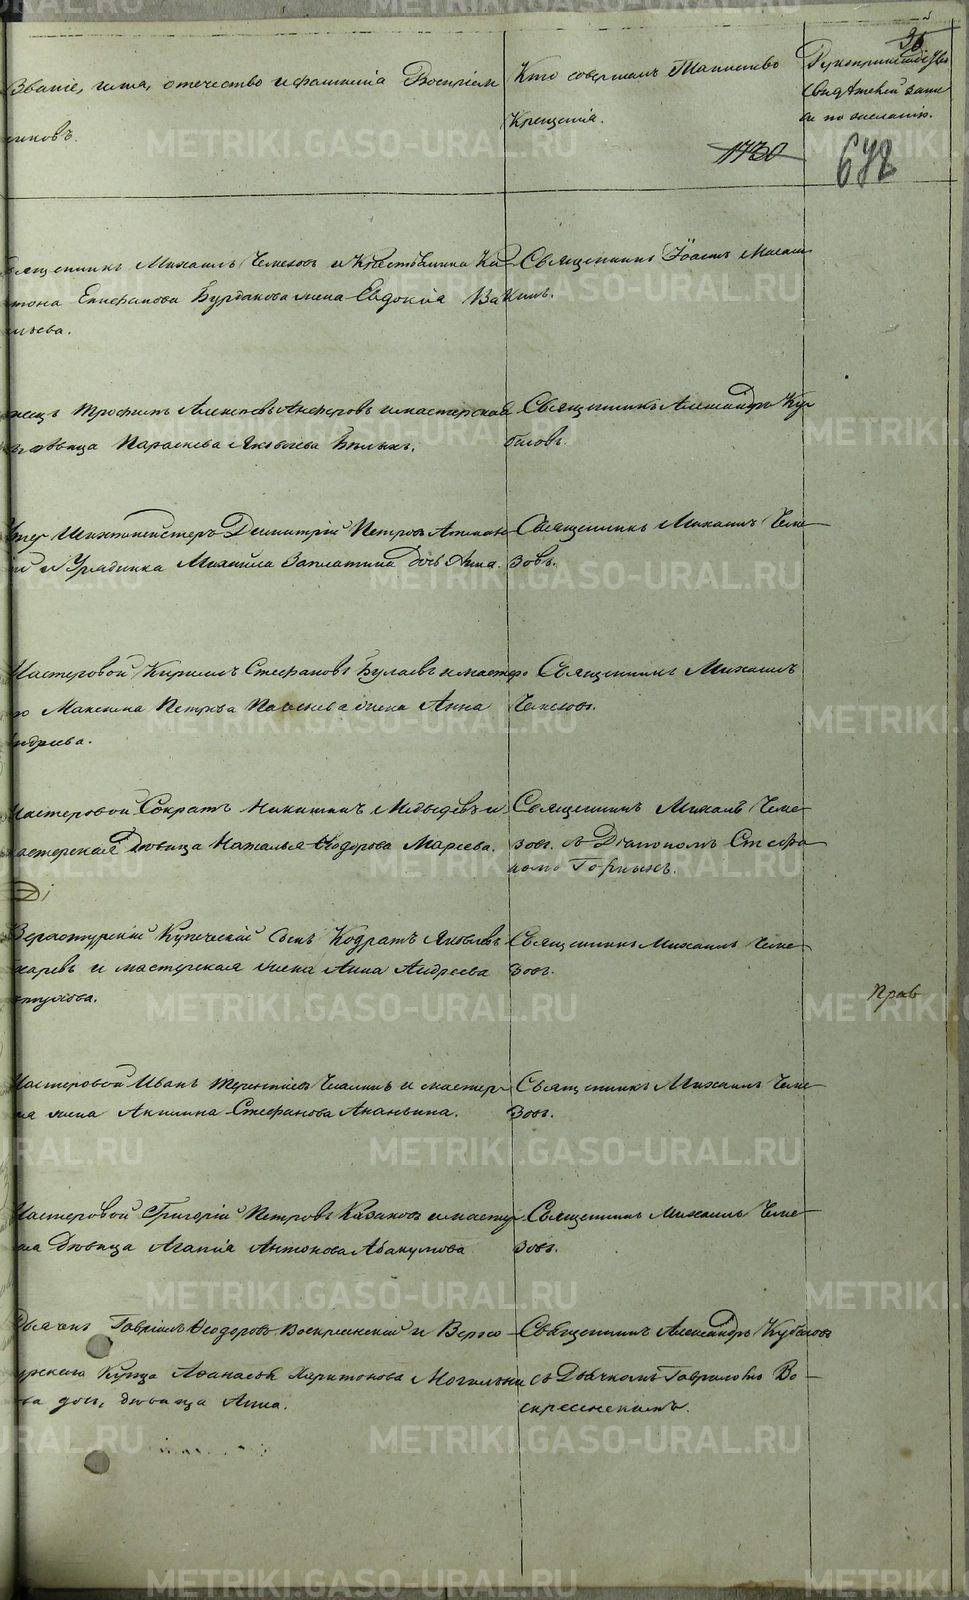 36
Званіе, имя, отечество и фамилія Воспріем
никовъ.
Кто совершалъ Таинство
Крещенія.
Рукоприкладство
свидѣтелей запи
си по желанію.
1730
642
METRIKI.GASO-URAL.RU
священникъ Михаилъ Чемезовъ и Крестьянина Ха
ритона Епифанова Бурдакова жена Евдокія Ва
сильева.
Священникъ Іоаннъ
Трофимъ Алексѣевъ Анферовъ и мастерская
дѣвица Параскева Яковлева Бѣлыхъ.
Священникъ Александръ Ку
биловъ.
Шихтмейстеръ Димитрій Петровъ
и Урядника Михаила Заплатина дочь Анна.
Священникъ Михаилъ Чеме
зовъ.
Мастеровой Кириллъ Стефановъ Булаевъ и мастеро
Максима Петрова жена Анна
Андреева.
Священникъ Михаилъ
Чемезовъ.
Мастеровой Сократъ Никитинъ Медвѣдевъ и
мастерская дѣвица Наталья Ѳеодорова Мареева.
Священникъ Михаилъ Чеме
зовъ съ Діакономъ Стефа
номъ Горныхъ.
Верхотурскій Купеческій Сынъ Кодратъ Яковлевъ
и мастерская жена Анна Андреева
Священникъ Михаилъ Чеме
зовъ.
Прав
Мастеровой Иванъ Терентіевъ Чекалинъ и мастер
ская жена Акилина Стефанова Ананьина.
Священникъ Михаилъ Чеме
зовъ.
Мастеровой Григорій Петровъ Казаковъ и мастер
ская дѣвица Агапія Антонова Абакумова
Священникъ Михаилъ Чеме
зовъ.
Дьячекъ Гавріилъ Ѳеодоровъ Воскресенскій и Верхо
турскаго Купца Аѳанасія Харитонова Могильни
кова дочь, дѣвица Анна.
Священникъ Александръ Кубиловъ
съ Дьячкомъ Гавриломъ Во
скресенскимъ.